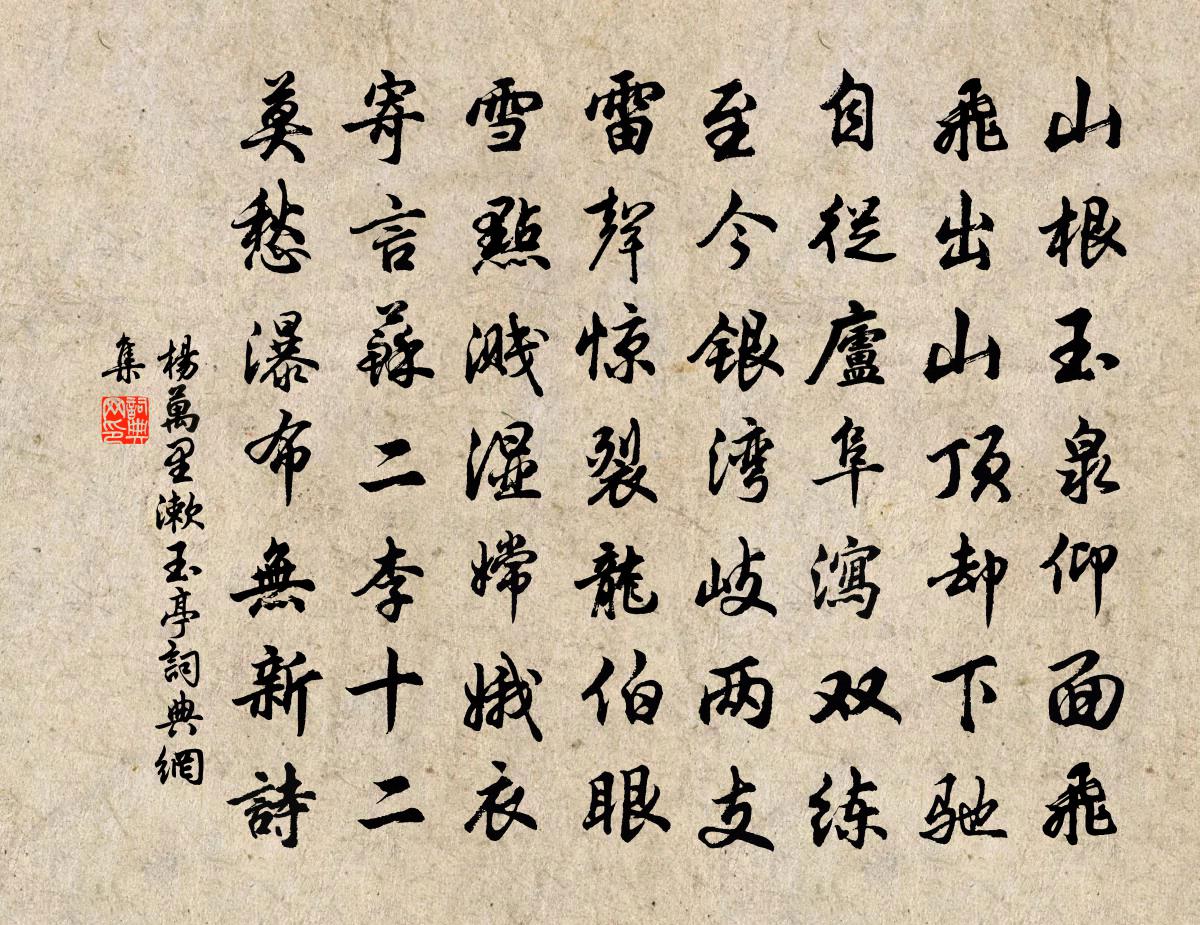 山根玉泉仰面飛
飛出山顶却下驰
自従廬阜瀉双练
至今銀湾岐两支
雷聲惊裂龍伯眼
雪點溅湿嫦娥衣
寄言蘇二李十二
莫愁瀑布無新詩
楊萬里漱玉亭詞典網
集
詞典
网印